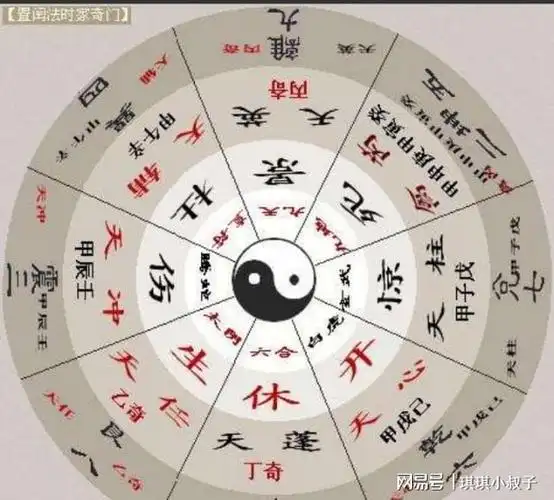 【置闰法时家奇门】
九
離
丙奇
天英
丙奇
天英
景
九天
五
二坤
甲寅癸
甲申庚
丙
禽
死
九地
七
兑
甲子戊
天柱
天柱
甲子戊
惊
玄武
六
乾
甲戌己
天心
甲戌己
开
白虎
天蓬
丁奇
休
六合
八
艮
天任
天任
乙奇
生
太阴
三
震
甲辰壬
天冲
天冲
甲辰壬
伤
螣蛇
四
巽
甲午辛
天辅
天辅
甲午辛
杜
直符
网易号 | 琪琪小叔子